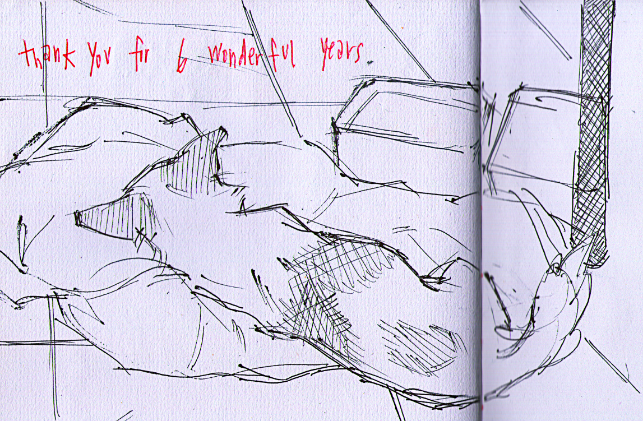 thank you for 6 wonderful years